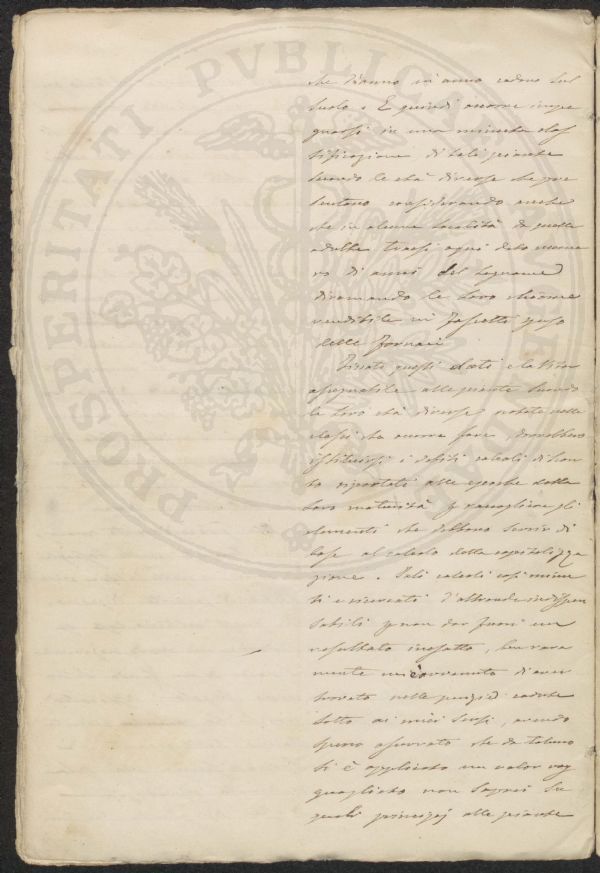 PROSPERITATI PVBLICAE
che d'anno in anno cadono sul
suolo. E quindi occorre impe
gnarsi in una minuta clas
sificazione di tali piante
secondo le età diverse che pre
sentano considerando anche
che in alcune località da quelle
adulte traesi ogni dato nume
ro di anni del legname
diramando le loro chiome
vendibile in fascetti
delle Fornaci
Fissati questi dati e la
assegnabile alle piante secondo
le loro età diverse, notate nelle
classi che occorre fare,
istituirsi i debiti calcoli di scon
to riportati alle epoche della
loro maturità p raccogliere gli
elementi che debbono servir di
base al calcolo della capitalizza
zione. Tali calcoli così minu
ti e ricercati d'altronde indispen
sabili p non dar fuori un
resultato inesatto, ben rara
mente mi è avvenuto di aver
trovato nelle perizie cadute
sotto ai miei sensi, avendo
spesso osservato che da taluno
si è applicato un valor rag
guagliato non saprei su
quali principj alle piante